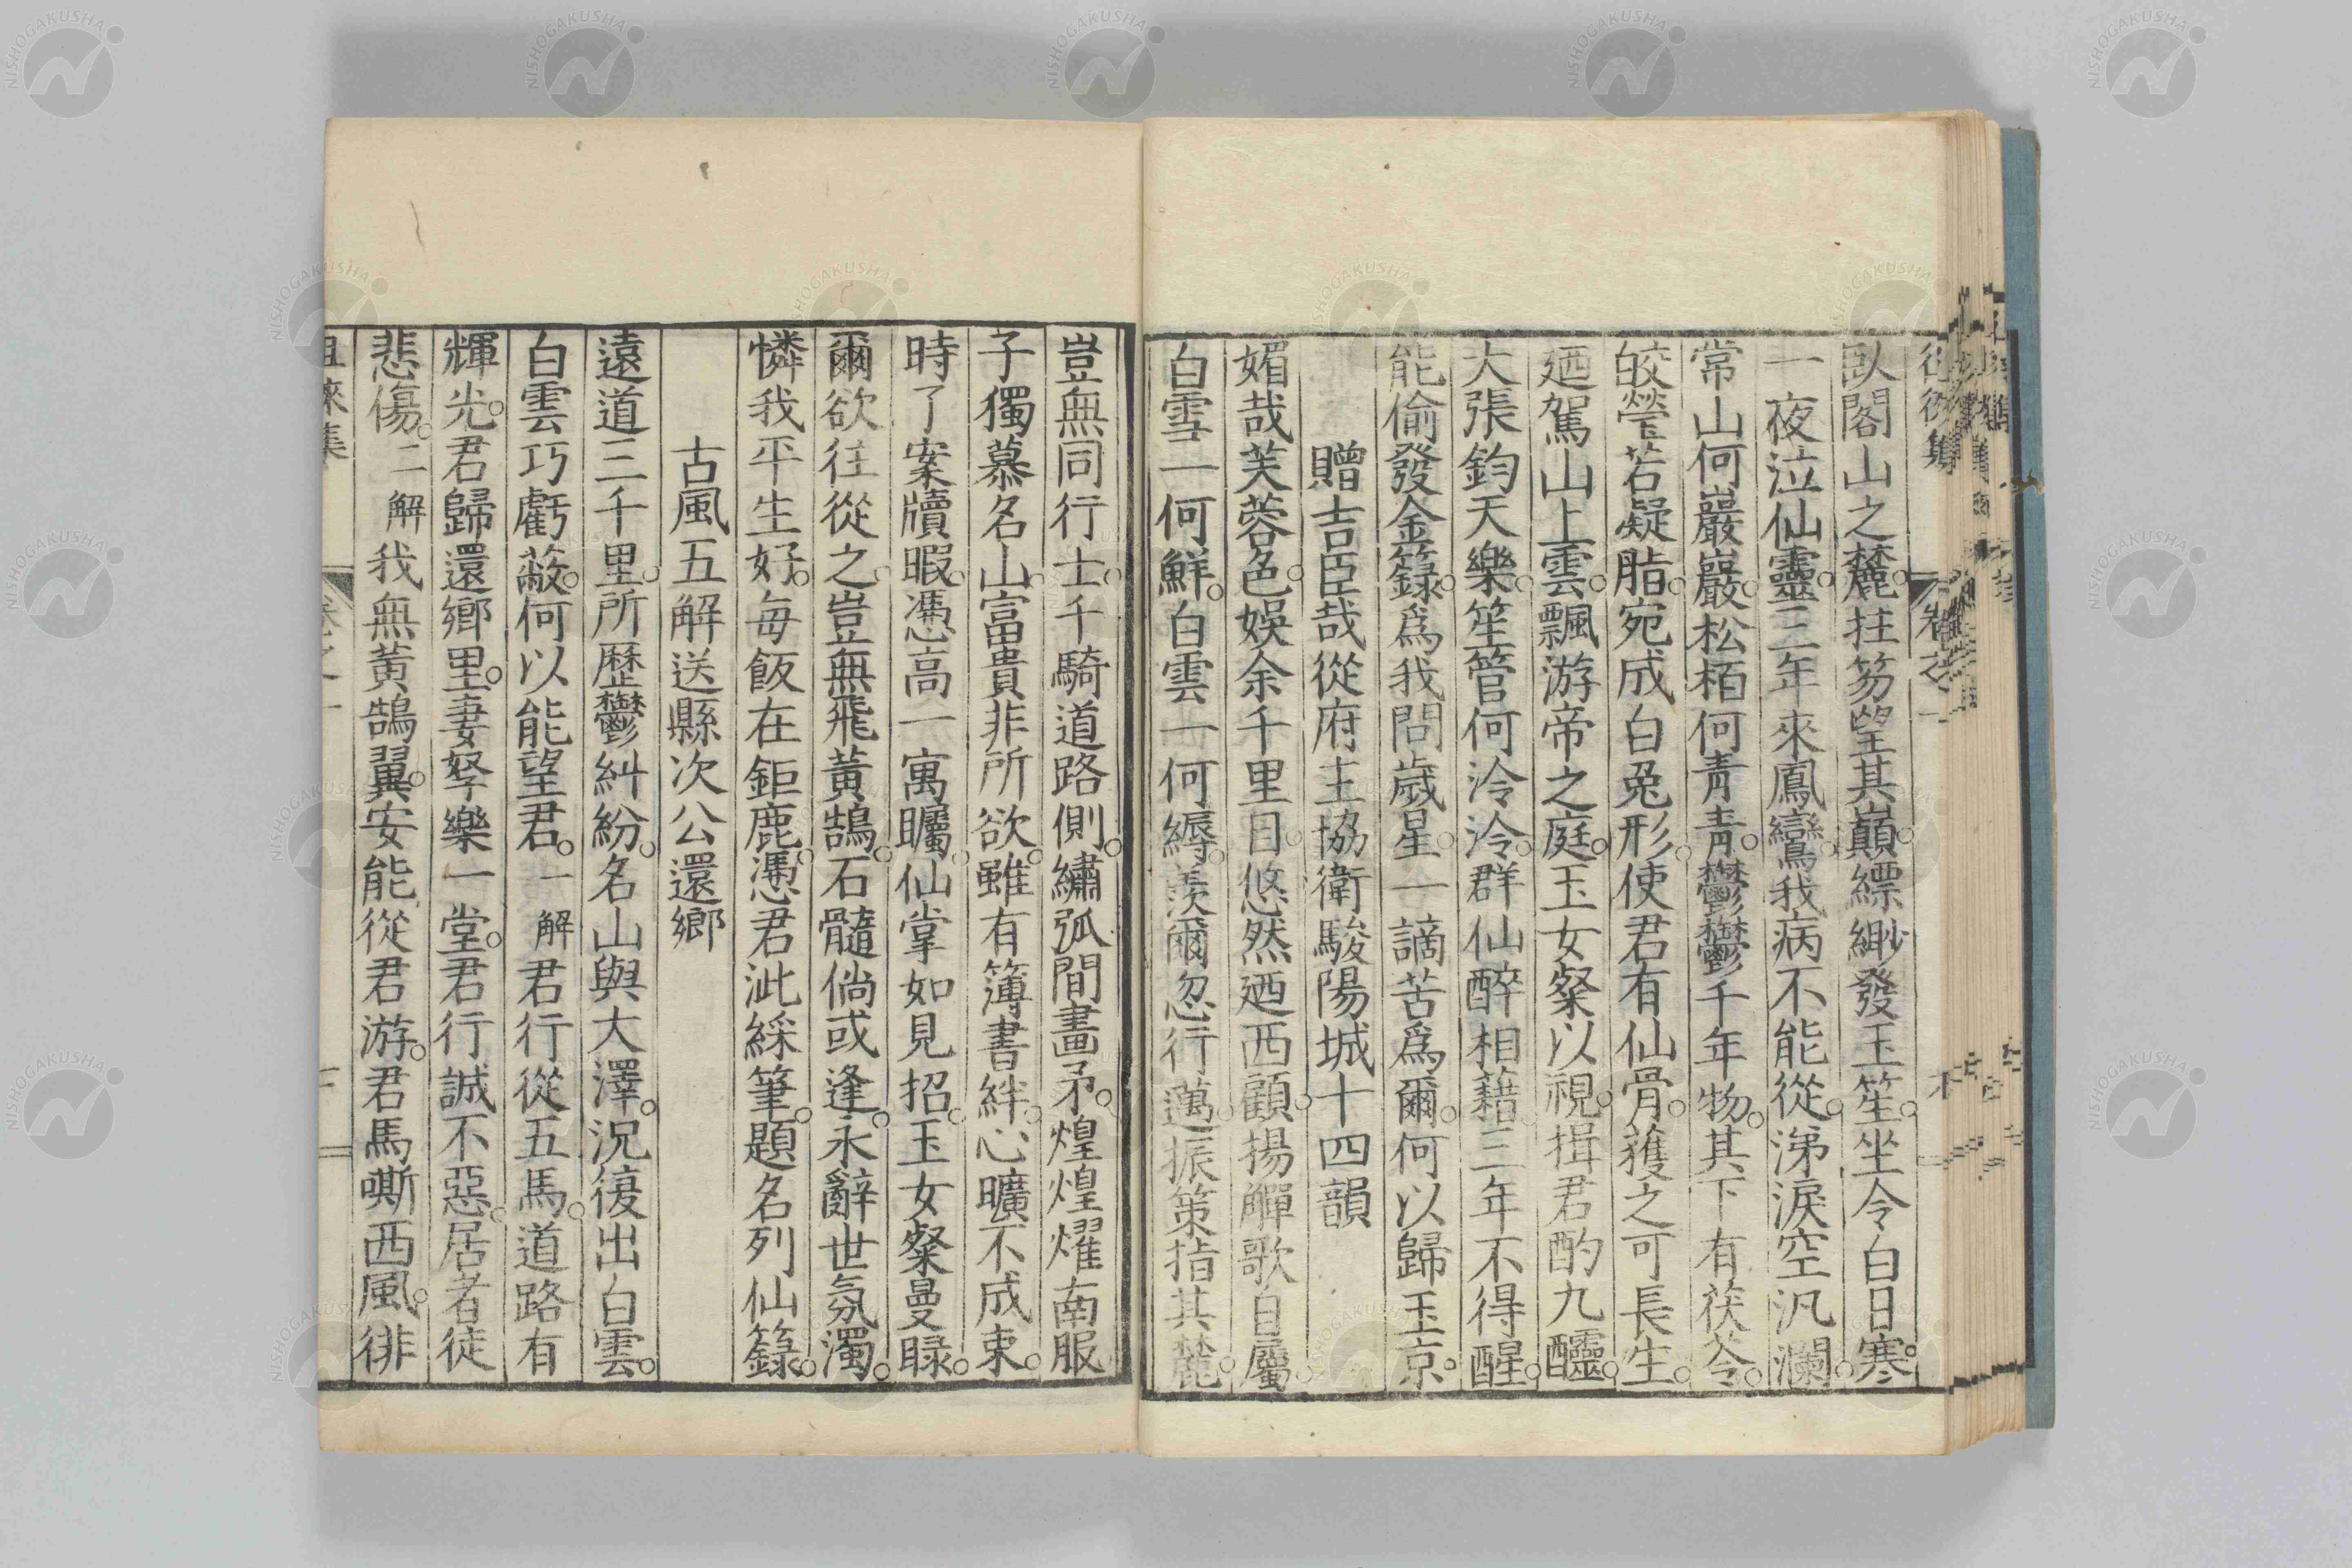 臥閣山之麓。拄笏望其巔。縹緲發玉笙。坐令白日寒。
一夜泣仙靈。三年來鳳鸞。我病不能從。涕淚空汎瀾。
常山何巖巖。松栢何青青。鬱鬱千年物。其下有茯苓。
皎瑩若凝脂。宛成白兔形。使君有仙骨。獲之可長生。
廼駕山上雲。飄游帝之庭。玉女粲以視。揖君酌九醽。
大張鈞天樂。笙管何泠泠。群仙醉相藉。三年不得醒。
能偷發金籙。爲我問歲星。一謫苦爲爾。何以歸玉京。
贈吉臣哉從府主協衛駿陽城十四韻
媚哉芙蓉色。娛余千里目。悠然廼西顧。揚觶歌自屬。
白雪一何鮮。白雲一何縟。羨爾忽行邁。振策指其麓。
豈無同行士。千騎道路側。繡弧間畫矛。煌煌燿南服
子獨慕名山。富貴非所欲。雖有簿書絆。心曠不成束。
時了案牘暇。憑高一寓矚。仙掌如見招。玉女粲曼睩。
爾欲往從之。豈無飛黃鵠。石髓倘或逢。永辭世氛濁。
憐我平生好。每飯在鉅鹿。憑君泚綵筆。題名列仙籙。
古風五解送縣次公還鄉
遠道三千里。所歷鬱糾紛。名山與大澤。況復出白雲。
白雲巧虧蔽。何以能望君。一解君行從五馬。道路有
輝光。君歸還鄉里。妻孥樂一堂。君行誠不惡。居者徒
悲傷。二解我無黃鵠翼。安能從君游。君馬嘶西風。徘
徂徠集 卷之一